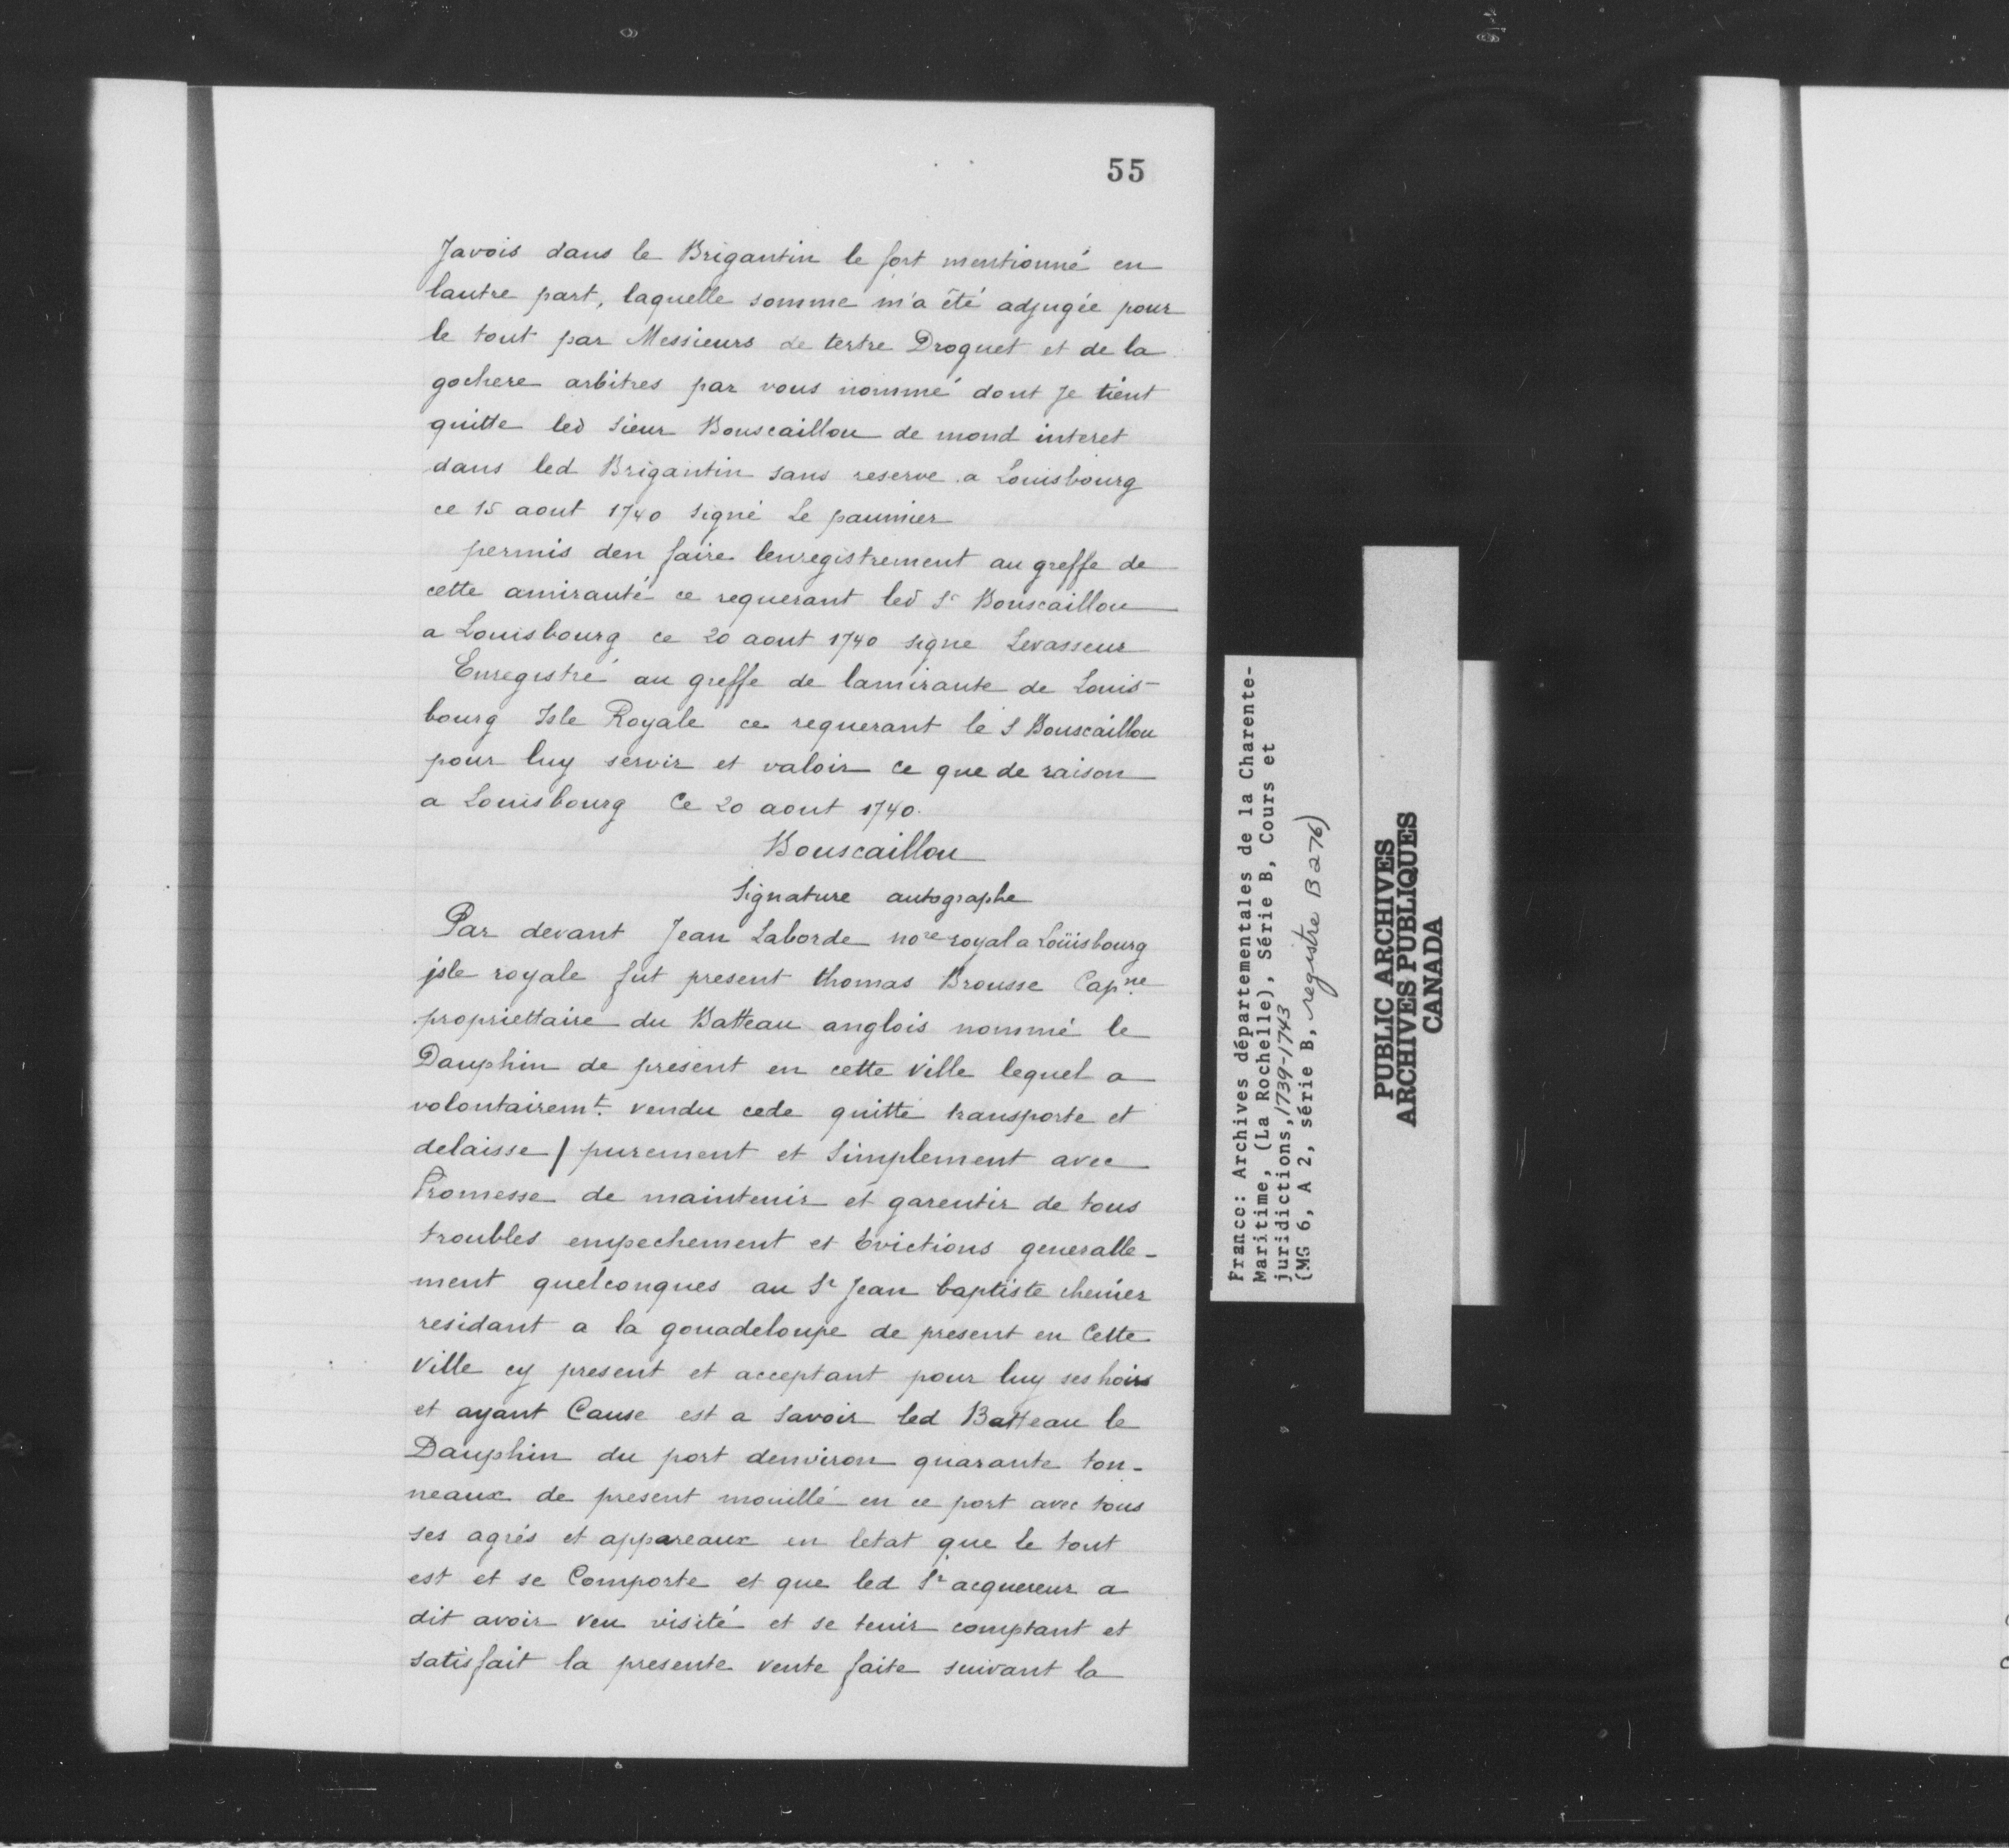 55
Javois dans le Brigantin le fort mentionné en
lautre part, laquelle somme m'a été adjugée pour
le tout par Messieurs de tertre Droguet et de la
gochere arbitres par vous nommé dont Je tient
quitte led Sieur Bouscaillou de mond interet
dans led Brigantin sans reserve a Louisbourg
ce 15 aout 1740 signé Le paumier
permis den faire lenregistrement au greffe de
cette amirauté ce requerant led Sr Bouscaillou
a Louisbourg ce 20 aout 1740 signe Levasseur
Enregistré au greffe de lamiraute de Louis-
bourg Isle Royale ce requerant le S Bouscaillou
pour luy servir et valoir ce que de raison
a Louisbourg Ce 20 aout 1740.
Bouscaillou
Signature autographe
Par devant Jean Laborde nore royal a Loüisbourg
jsle royale fut present thomas Brousse Capne
propriettaire du Batteau anglois nommé le
Dauphin de present en cette Ville lequel a
volontairemt. vendu cede quitté transporte et
delaisse / purement et Simplement avec
Promesse de maintenir et garentir de tous
troubles empechement et Evictions generalle-
ment quelconques au Sr Jean baptiste chenier
residant a la gouadeloupe de present en Cette
Ville cy present et acceptant pour luy ses hoirs
et ayant Cause est a Savoir led Batteau le
Dauphin du port denviron quarante ton-
neaux de present mouillé en ce port avec tous
ses agrés et appareaux en letat que le tout
est et se Comporte et que led Sr acquereur a
dit avoir veu visité et se tenir comptant et
satisfait la presente vente faite suivant la
France: Archives départementales de la Charente-
Maritime, (La Rochelle), Série B, Cours et
juridictions, 1739-1743
(MG 6, A 2, série B, registre B276)
PUBLIC ARCHIVES
ARCHIVES PUBLIQUES
CANADA